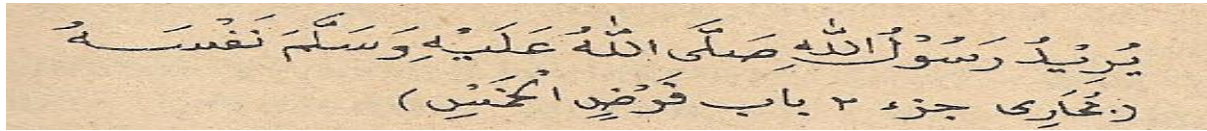 يُرِيْدُ رَسُوْلُ اللّٰهِ صَلَّى اللّٰهُ عَلَيْهِ وَسَلَّمَ نَفْسَهُ
(بُخَارِى جزء ٢ باب فَرْضِ الْخُمُسِ)